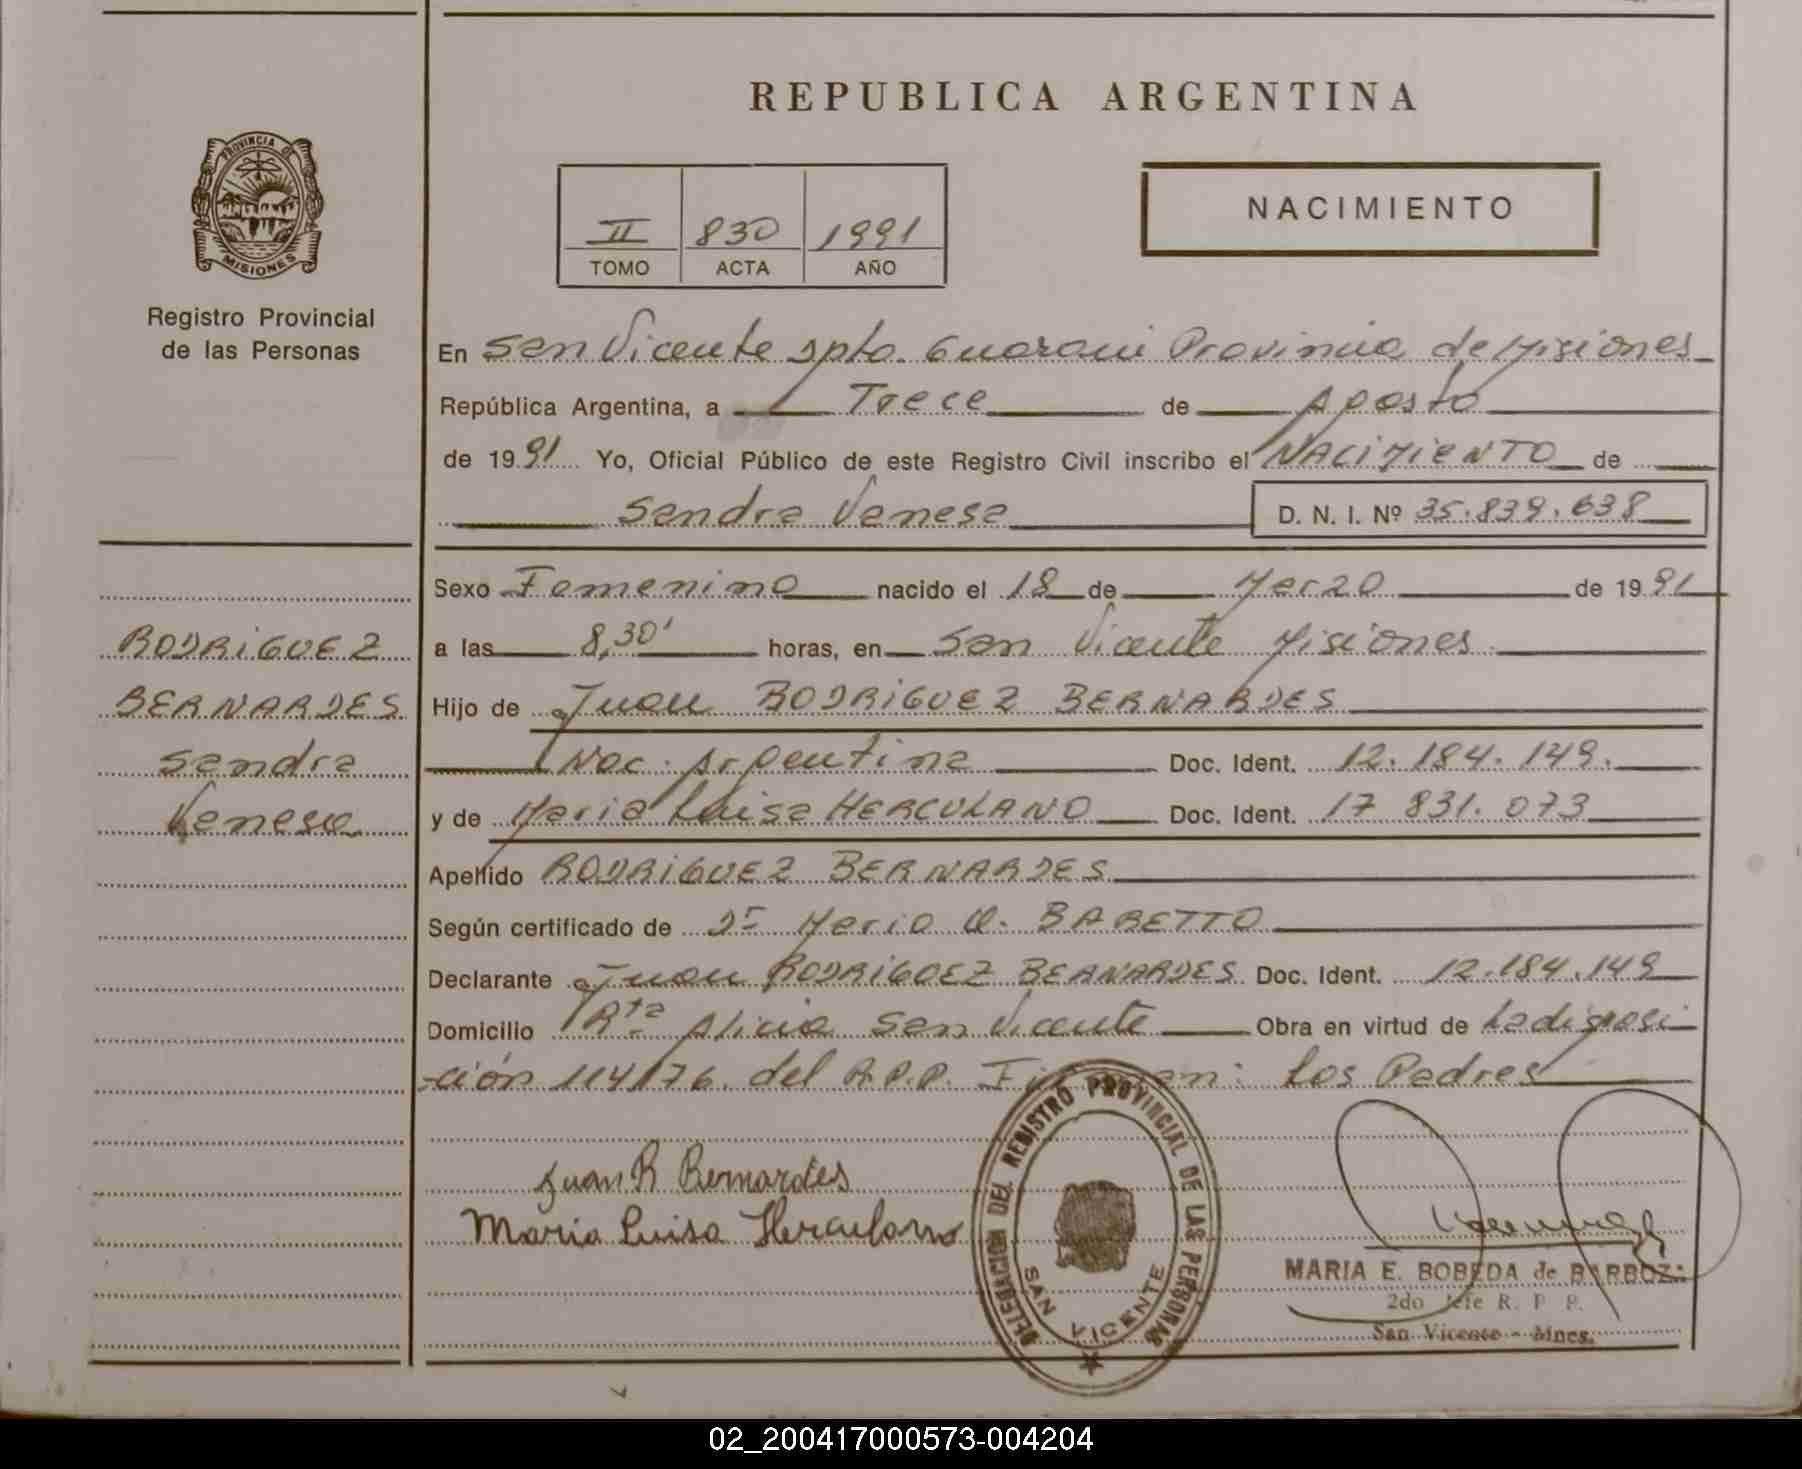 REPUBLICA ARGENTINA
PROVINCIA DE
MISIONES
Registro Provincial
de las Personas
II 830 1991
TOMO ACTA AÑO
NACIMIENTO
En San Vicente Dpto. Guarani Provincia de Misiones
República Argentina, a Trece de Agosto
de 1991 Yo, Oficial Público de este Registro Civil inscribo el NACIMIENTO de
Sandra Vanesa D. N. I. Nº 35.839.638
Sexo Femenino nacido el 18 de Marzo de 1991
a las 8,30' horas, en San Vicente Misiones
Hijo de Juan RODRIGUEZ BERNARDES
Nac. Argentina Doc. Ident. 12.184.149.
y de Maria Luisa HERCULANO Doc. Ident. 17 831.073
Apellido RODRIGUEZ BERNARDES
Según certificado de Dr Mario O. BARETTO
Declarante Juan RODRIGUEZ BERNARDES Doc. Ident. 12.184.149
Domicilio Rta Alicia San Vicente Obra en virtud de La disposi
-ción 114/76 del R.P.P. Los Padres
RODRIGUEZ
BERNARDES
Sandra
Vanesa
Juan R Bernardes
Maria Luisa Herculano
DELEGACION DEL REGISTRO PROVINCIAL DE LAS PERSONAS
SAN VICENTE
MARIA E. BOBEDA de BARBOZA
2do Jefe R. P. P.
San Vicente - Mnes.
02_200417000573-004204